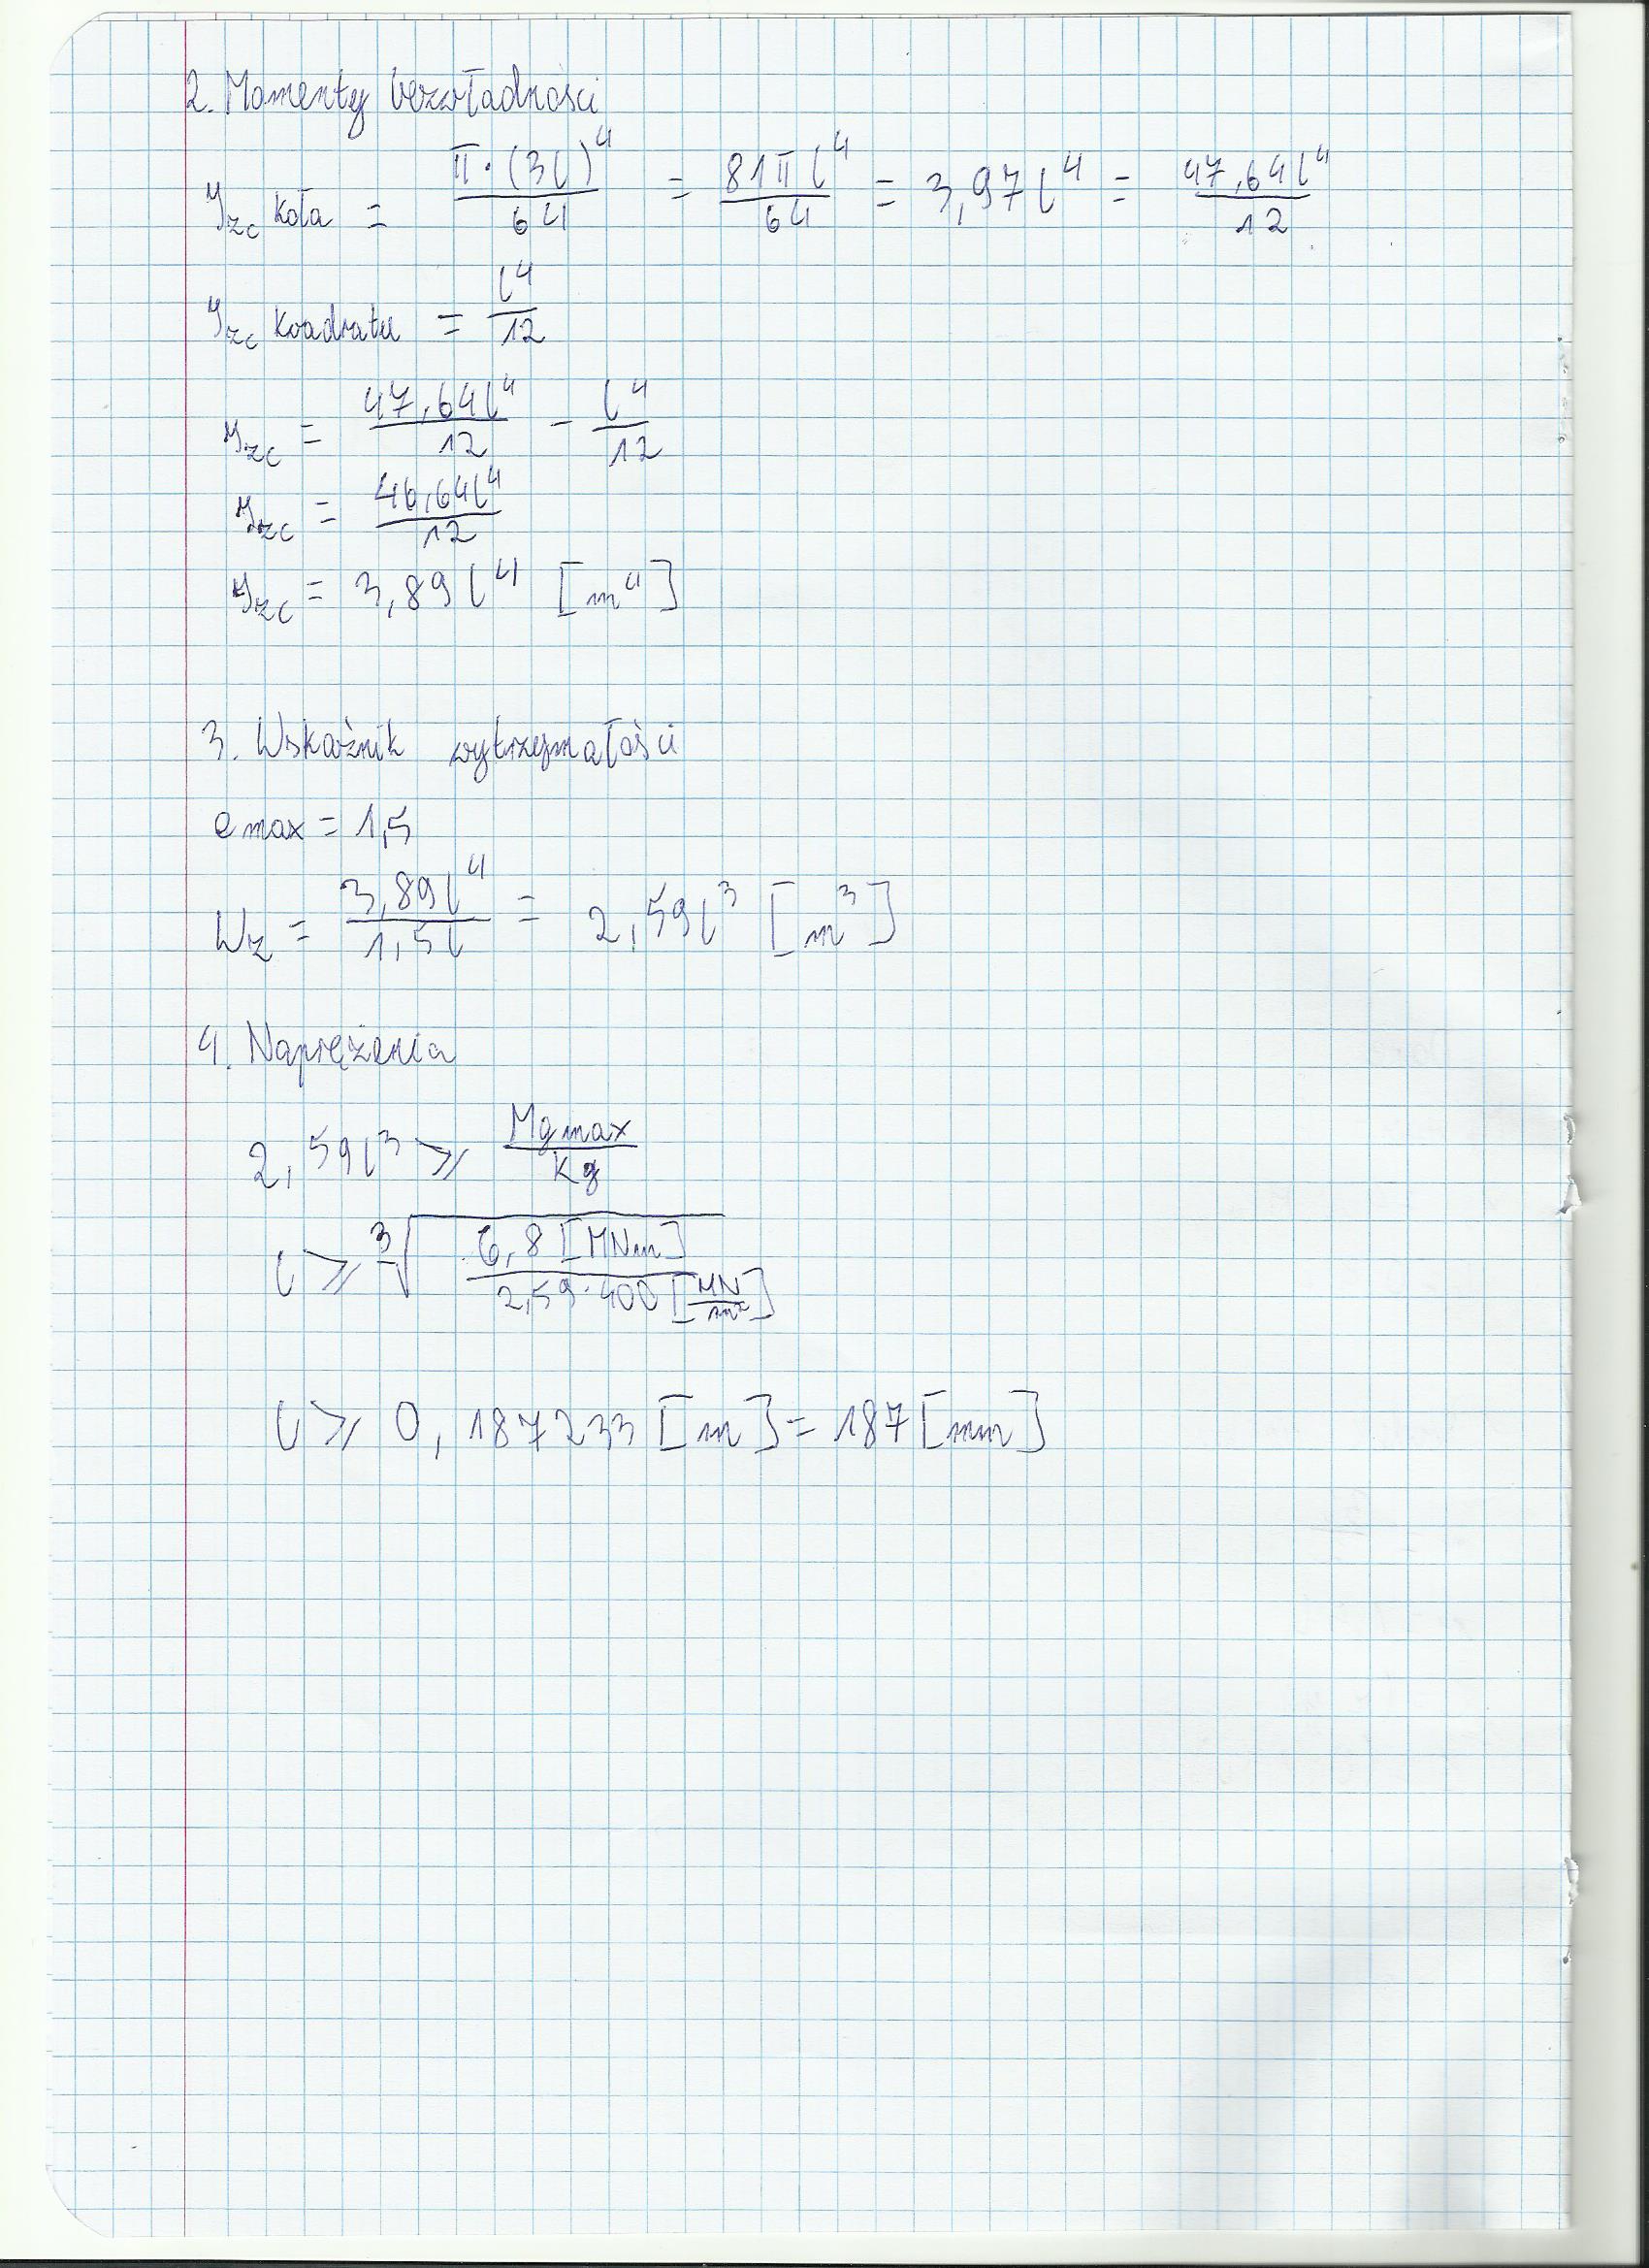 2. Momenty bezwładności
Jzc koła = π·(3l)⁴/64 = 81πl⁴/64 = 3,97l⁴ = 47,64l⁴/12
Jzc kwadratu = l⁴/12
Jzc = 47,64l⁴/12 - l⁴/12
Jzc = 46,64l⁴/12
Jzc = 3,89l⁴ [m⁴]
3. Wskaźnik wytrzymałości
emax = 1,5
Wz = 3,89l⁴/1,5l = 2,59l³ [m³]
4. Naprężenia
2,59l³ ⩾ Mgmax/kg
l ⩾ ∛(6,8[MNm]/2,59·400[MN/m²])
l ⩾ 0,187233[m] = 187[mm]